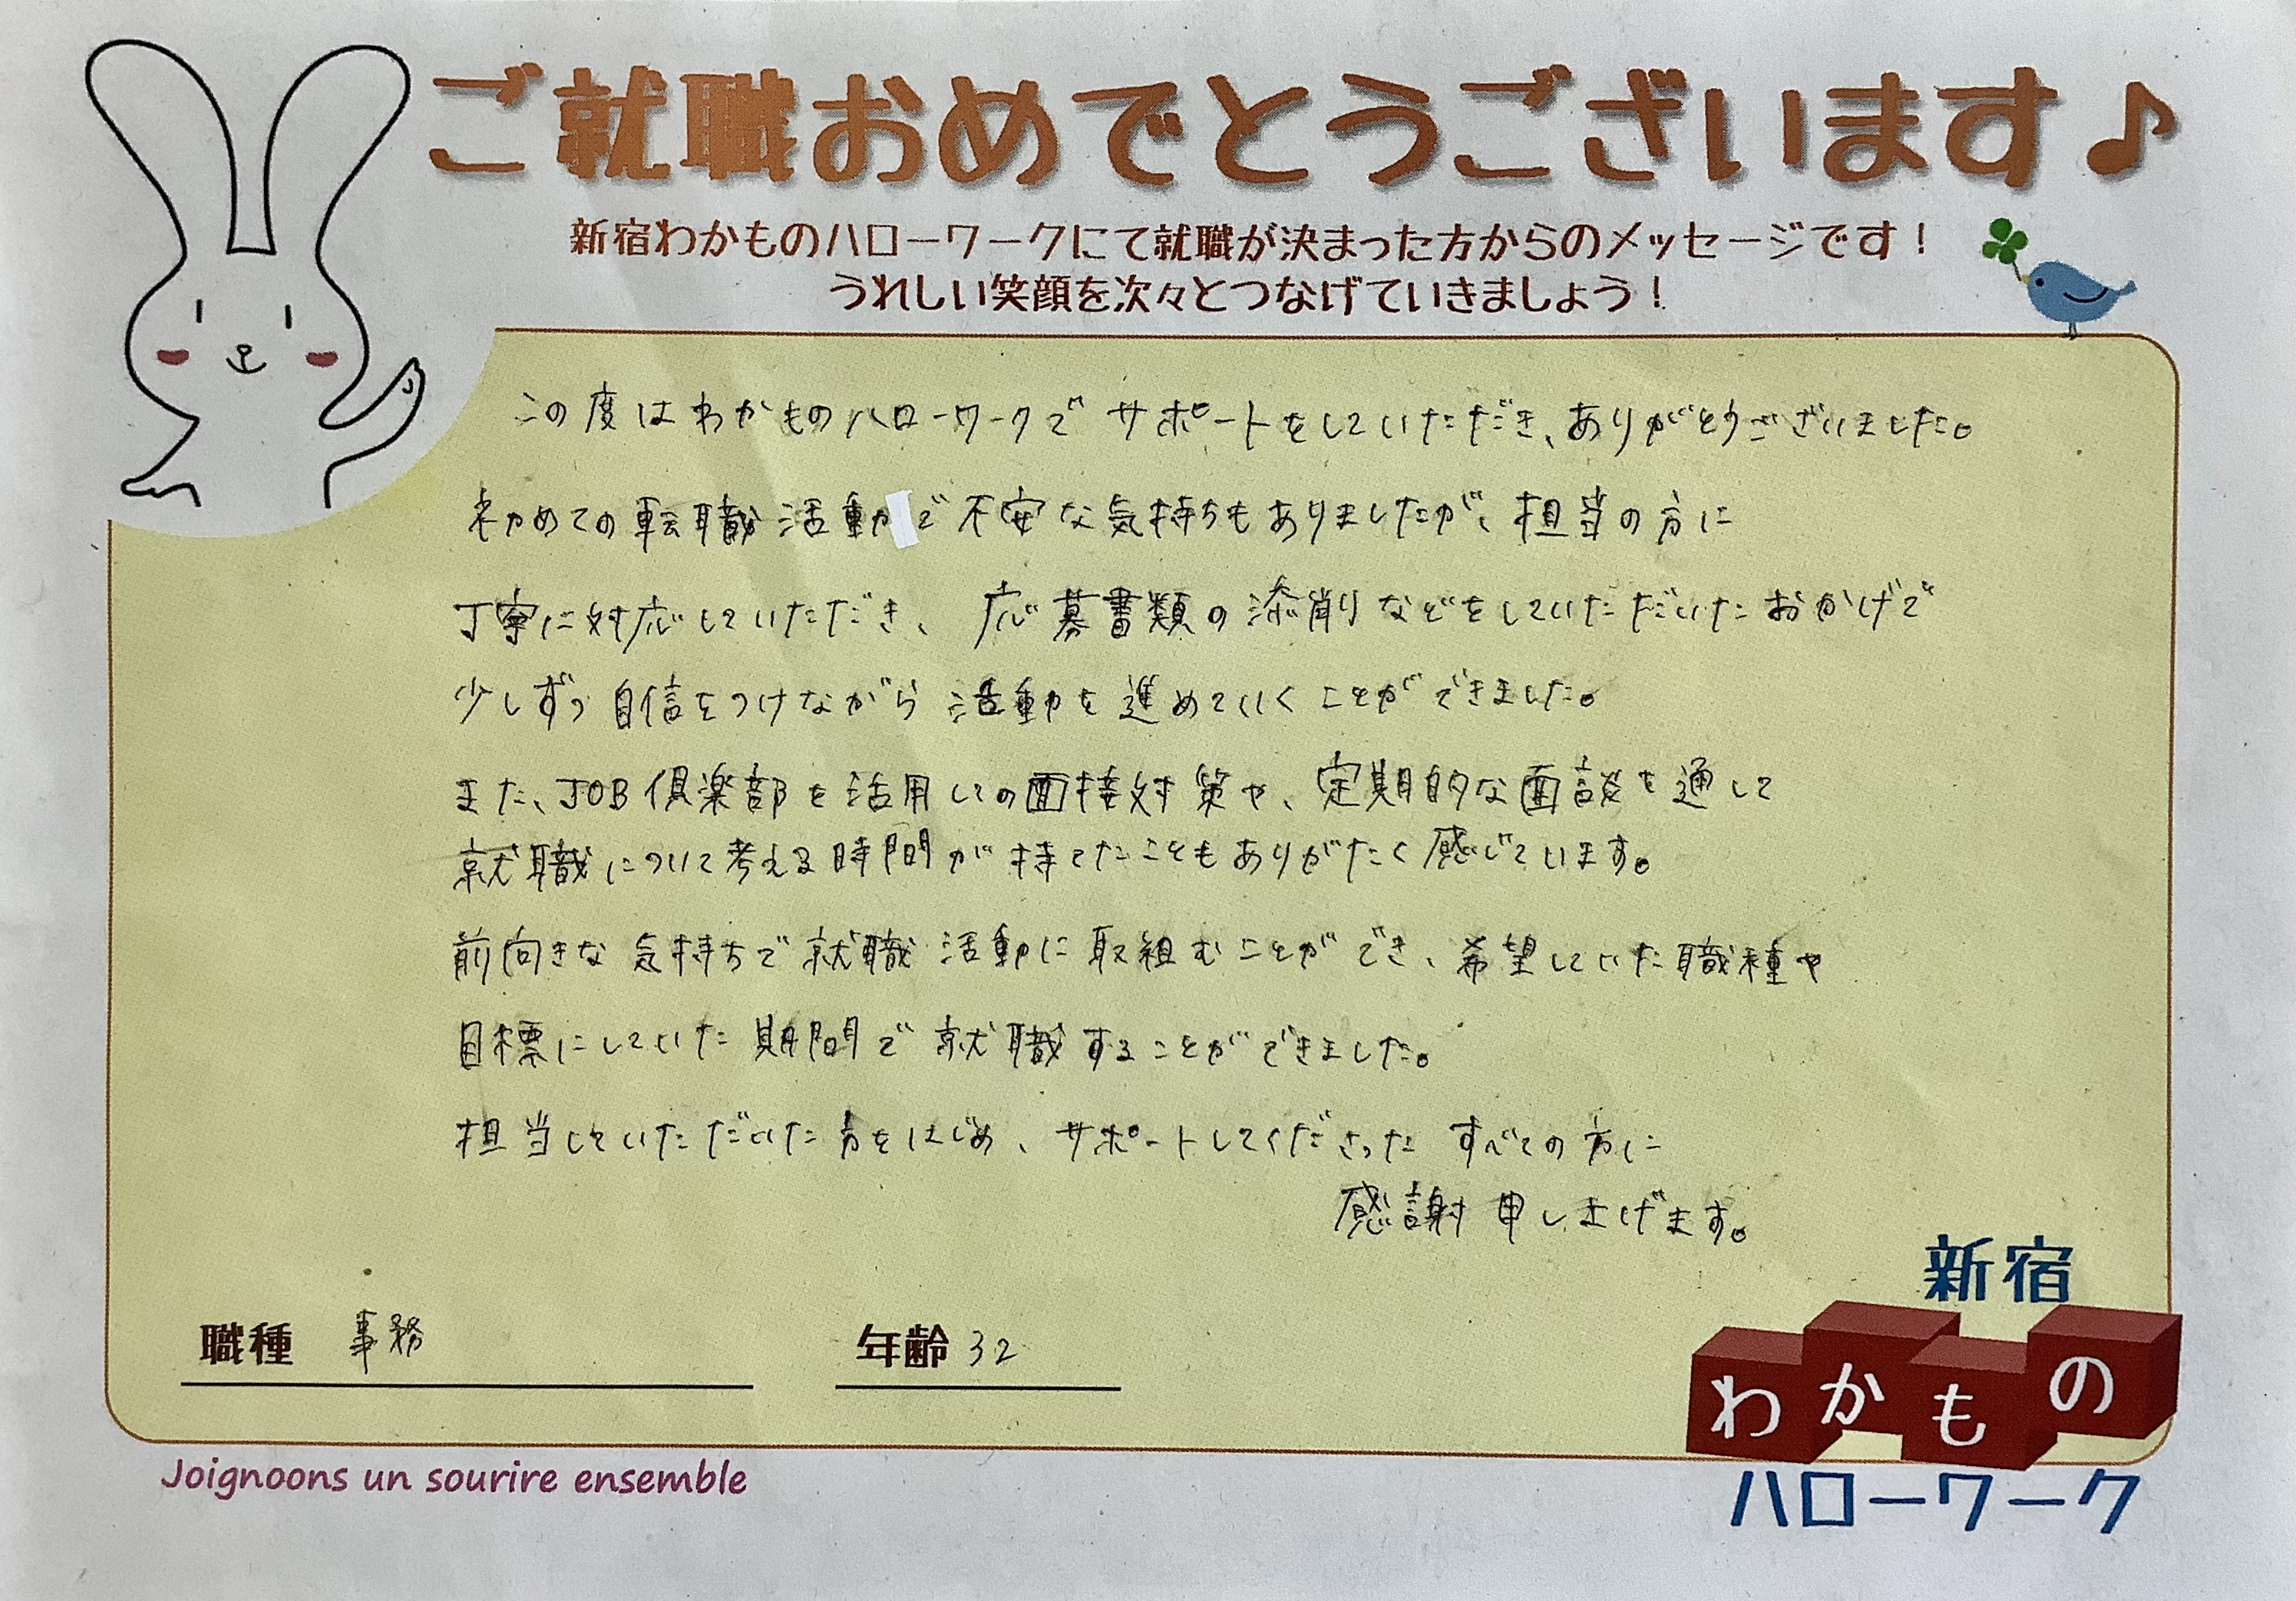 ご就職おめでとうございます♪
新宿わかものハローワークにて就職が決まった方からのメッセージです！
うれしい笑顔を次々とつなげていきましょう！
この度はわかものハローワークでサポートをしていただき、ありがとうございました。
初めての転職活動で不安な気持ちもありましたが、担当の方に
丁寧に対応していただき、応募書類の添削などをしていただいたおかげで
少しずつ自信をつけながら活動を進めていくことができました。
また、JOB倶楽部を活用しての面接対策や、定期的な面談を通して
就職について考える時間が持てたこともありがたく感じています。
前向きな気持ちで就職活動に取組むことができ、希望していた職種や
目標にしていた期間で就職することができました。
担当していただいた方をはじめ、サポートしてくださったすべての方に
感謝申し上げます。
職種 事務 年齢 32
新宿
わかもの
ハローワーク
Joignoons un sourire ensemble